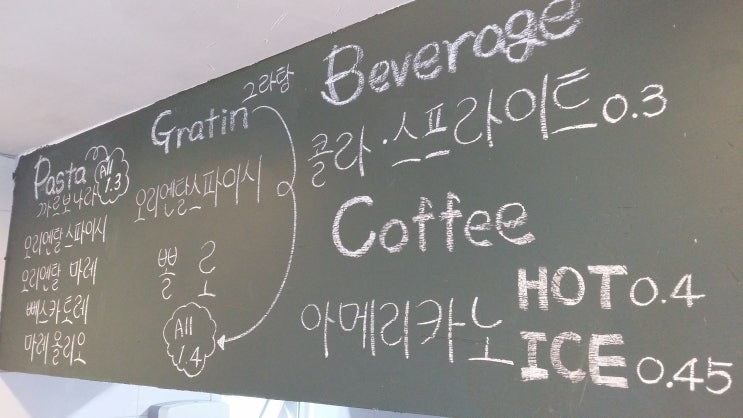 Pasta All 1.3
까르보나라
오리엔탈스파이시
오리엔탈 마레
뻬스카토레
마레올리오
Gratin 그라탕
오리엔탈스파이시
뽈로
All 1.4
Beverage
콜라·스프라이트 0.3
Coffee
아메리카노 HOT 0.4
ICE 0.45